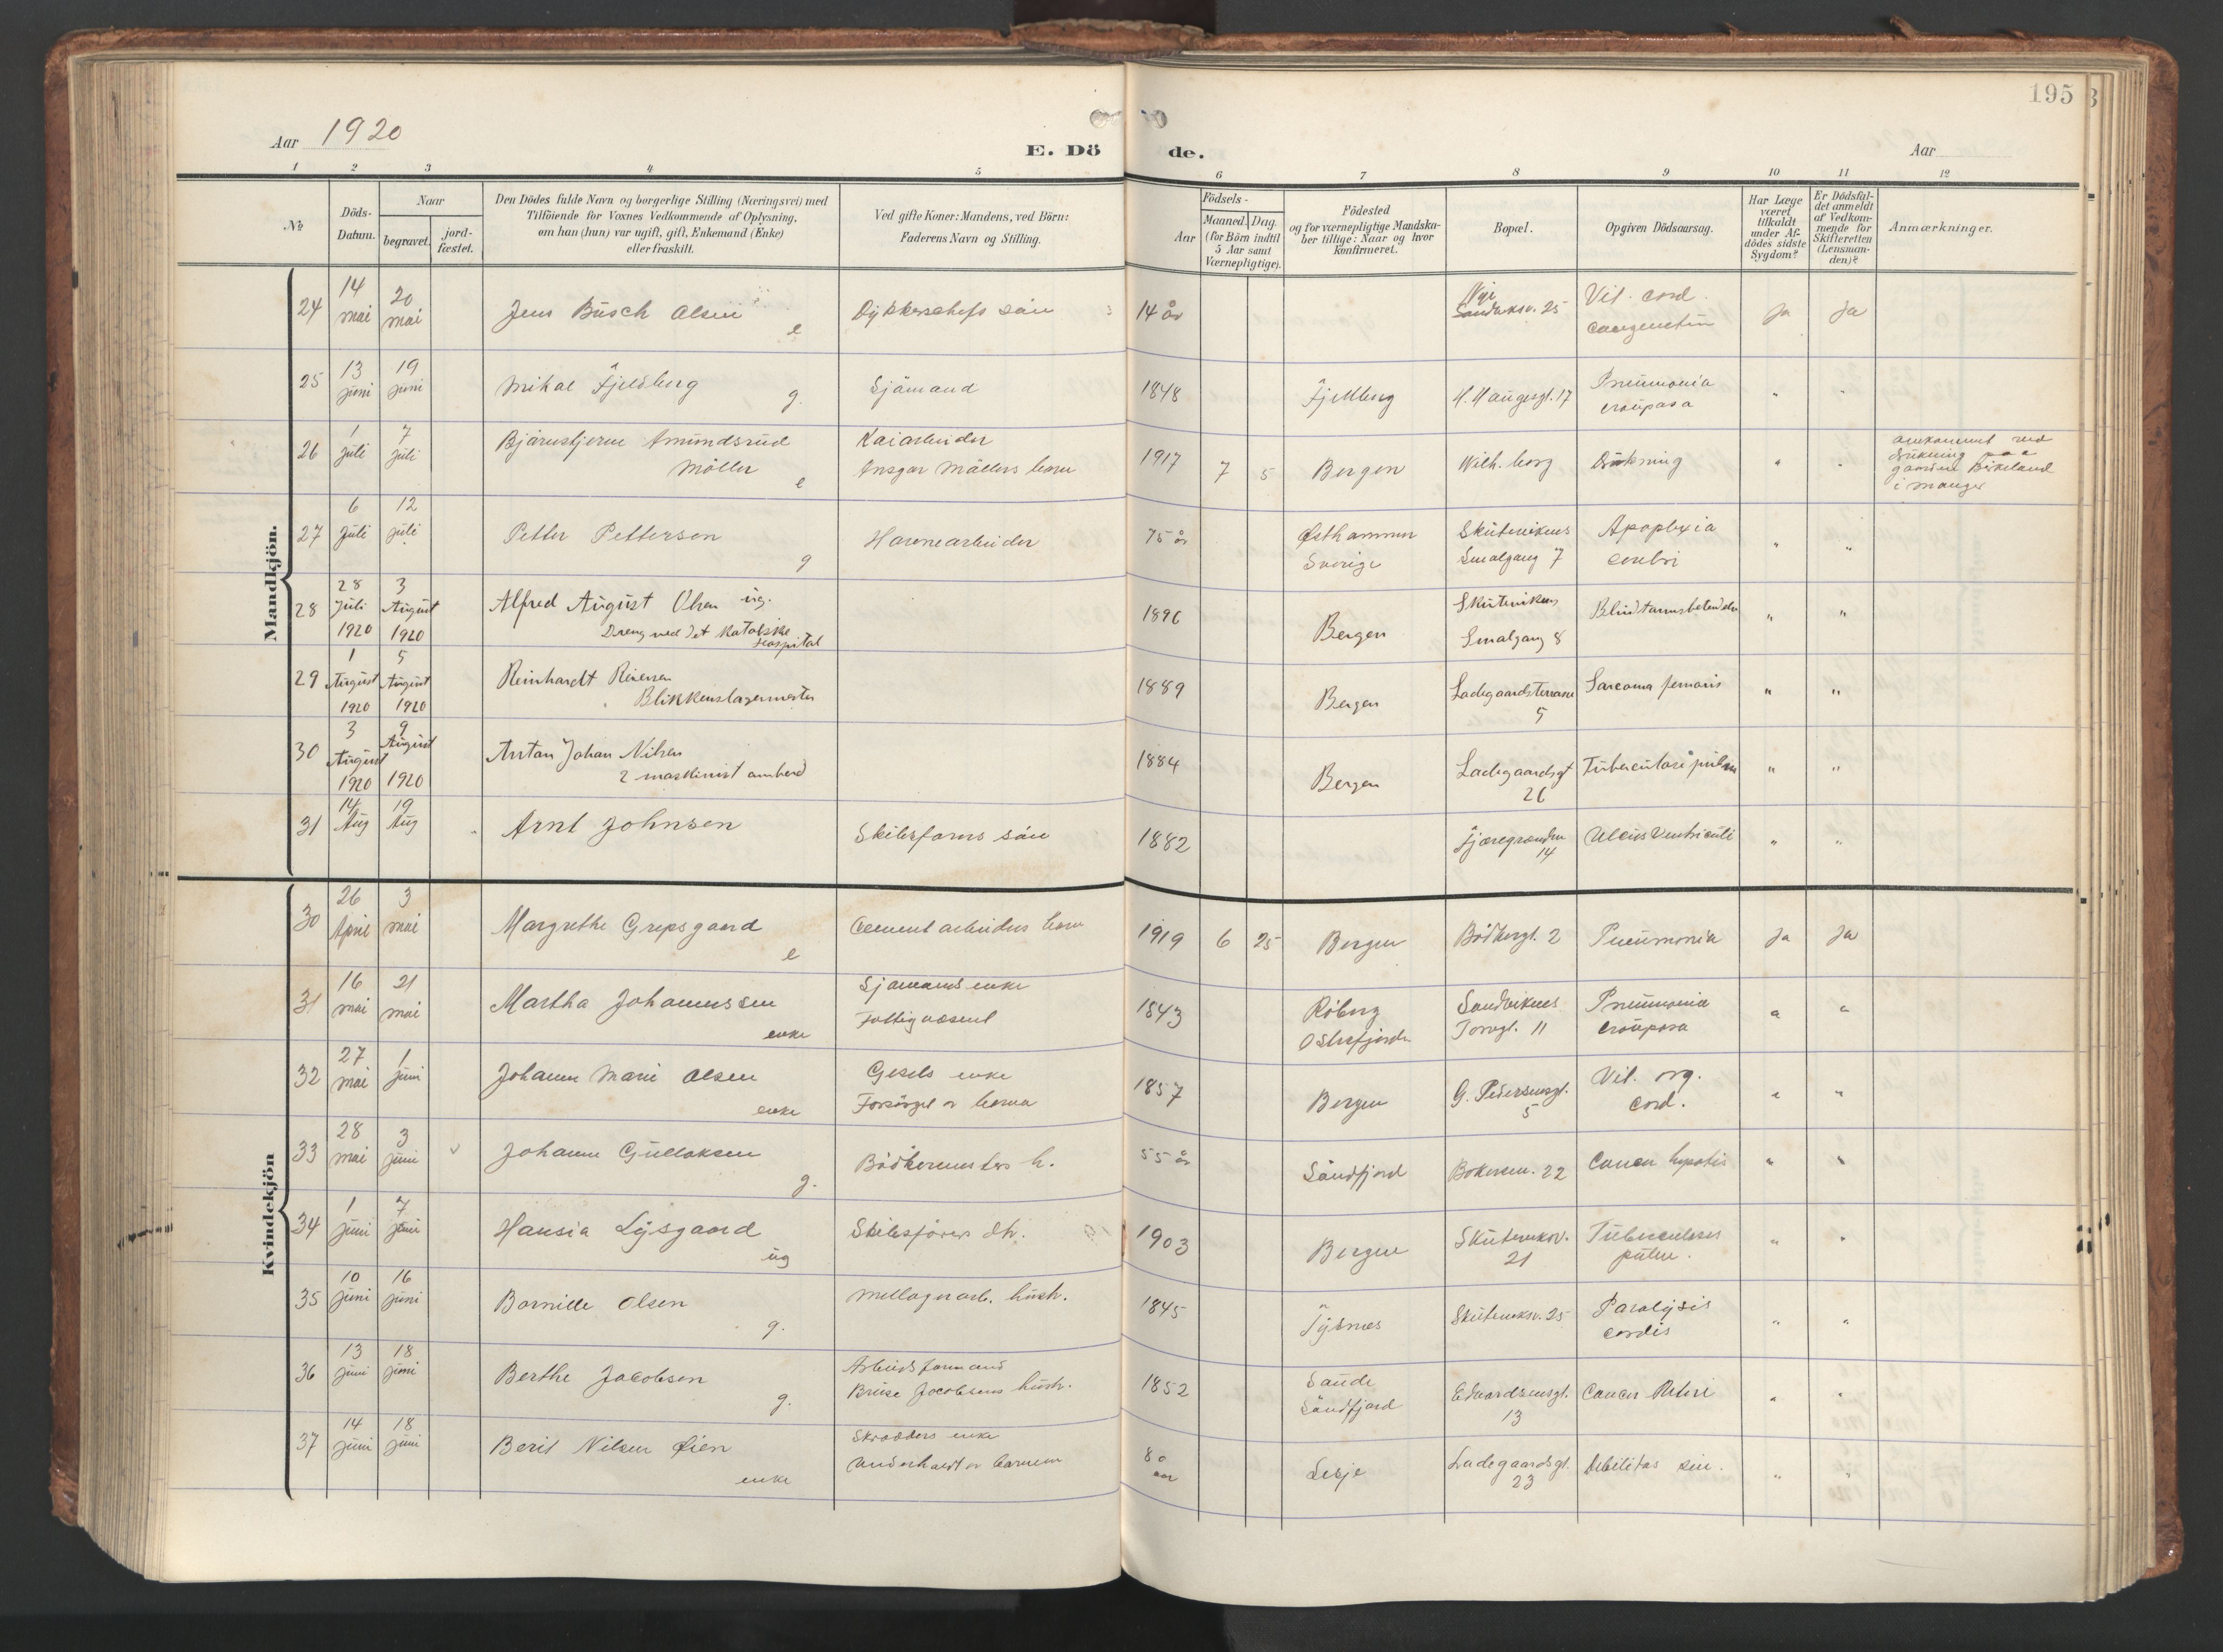 195
Aar 1920
E. Döde.
Aar
1 2 3 4 5 6 7 8 9 10 11 12
No
Döds-Datum.
Naar
begravet.
jord-fæstet.
Den Dödes fulde Navn og borgerlige Stilling (Næringsvei) med
Tilföiende for Voxnes Vedkommende af Oplysning,
om han (hun) var ugift, gift, Enkemand (Enke)
eller fraskilt.
Ved gifte Koner: Mandens, ved Börn:
Faderens Navn og Stilling.
Födsels-
Aar
Maaned. Dag.
(for Börn indtil
5 Aar samt
Værnepligtige).
Födested
og for værnepligtige Mandska-
ber tillige: Naar og hvor
konfirmeret.
Bopæl.
Opgiven Dödsaarsag.
Har Læge
været
tilkaldt
under Af-
dödes sidste
Sygdom?
Er Dödsfal-
det anmeldt
af Vedkom-
mende for
Skifteretten
(Lensman-
den)?
Anmærkninger.
Mandkjön.
24 14 mai 20 mai Jens Busch Olsen e Dykkerchefs sön 14 år Nye Sandviksv. 25 Vit. cord. Ja Ja
25 13 juni 19 juni Mikal Fjeldberg g. Sjömand 1848 Fjellberg H. Haugesgt. 17 Pneumonia crouposa " "
26 1 juli 7 juli Bjarnestjerne Amundsrud Möller e Kaiarbeider Ansgar Möllers barn 1917 7 5 Bergen Wilh. borg Drukning " " omkommet ved
drukning paa
gaarden Birkeland
i Manger
27 6 juli 12 juli Petter Pettersen g Havnearbeider 75 år Østhammer Sverige Skutevikens Smalgang 7 Apoplexia cerebri " "
28 28 Juli 1920 3 August 1920 Alfred August Olsen ug. Dreng ved det Katolske Hospital 1896 Bergen Skutevikens Smalgang 8 Blindtarmsbetendelse " "
29 1 August 1920 5 August 1920 Reinhardt Reiersen Blikkenslagermester 1889 Bergen Ladegaardsterrasse 5 Sarcoma femoris " "
30 3 August 1920 9 August 1920 Anton Johan Nilsen 2 maskinist ombord 1884 Bergen Ladegaardsgt 26 Tuberculose pulm " "
31 14 Aug 19 Aug Arnt Johnsen Skibsförers sön 1882 Fjæregrænden 14 Ulcus Ventriculi " "
Kvindekjön
30 26 April 3 mai Margrethe Grepsgaard e Cementarbeiders barn 1919 6 25 Bergen Bödkergt. 2 Pneumonia Ja Ja
31 16 mai 21 mai Martha Johannessen enke Sjömands enke Fattigvæsenet 1843 Osterfjorden Sandvikens Torvgt. 11 Pneumonia crouposa " "
32 27 mai 1 juni Johanne Marie Olsen enke Gesels enke Forsörget av barna 1857 Bergen G. Pedersensgt. 5 Vit. org. cord. " "
33 28 mai 3 juni Johanne Gullaksen g. Bödkermesters h. 55 år Söndfjord 22 Cancer hepatis " "
34 1 juni 7 juni Hansia Lysgaard ug Skibsförers dtr. 1903 Bergen Skuteviksv. 21 Tuberculosis pulm. " "
35 10 juni 16 juni Bornille Olsen g. Mellagerarb. hustr. 1845 Tysnes Skuteviksv. 25 Paralysis cordis " "
36 13 juni 18 juni Berthe Jacobsen g. Arbeidsformand Bruse Jacobsens hustr. 1852 Söndfjord Edvardsensgt. 13 Cancer Uteri " "
37 14 juni 18 juni Berit Nilsen Øien enke Skrædders enke Underholdt av barnene 80 aar Lesje Ladegaardsgt. 23 Debilitas sen. " "